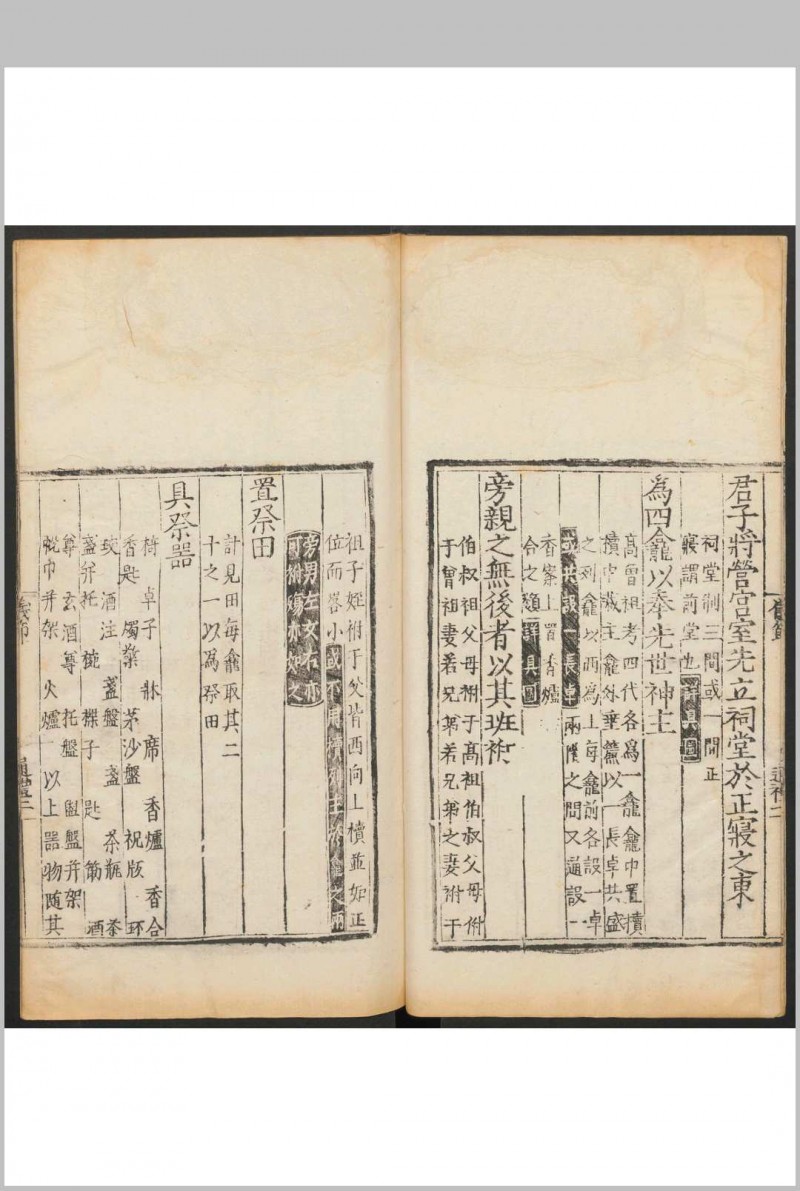 君子將營宮室先立祠堂於正寢之東
祠堂制三間或一間正
寢謂前堂也詳具圖
為四龕以奉先世神主
高曾祖考四代各為一龕龕中置櫝
櫝中藏主龕外垂簾以一長卓共盛
之列龕以西為上每龕前各設一卓
或共設一長卓兩階之間又通設一
香案上置香爐
合之類詳具圖
旁親之無後者以其班祔
伯叔祖父母祔于高祖伯叔父母祔
于曾祖妻若兄弟若兄弟之妻祔于
祖子姪祔于父皆西向上櫝並如正
位而畧小或不用櫝列主於龕之兩
旁男左女右亦
可祔殤亦如之
置祭田
計見田每龕取其二
十之一以為祭田
具祭器
椅 卓子 牀 席 香爐 香合
香匙 燭檠 茅沙盤 祝版 环
珓 酒注 盞盤 盞 茶瓶 茶
盞并托 椀 楪子 匙 筯 酒
尊 玄酒尊 托盤 盥盤并架
帨巾并架 火爐 以上器物隨其